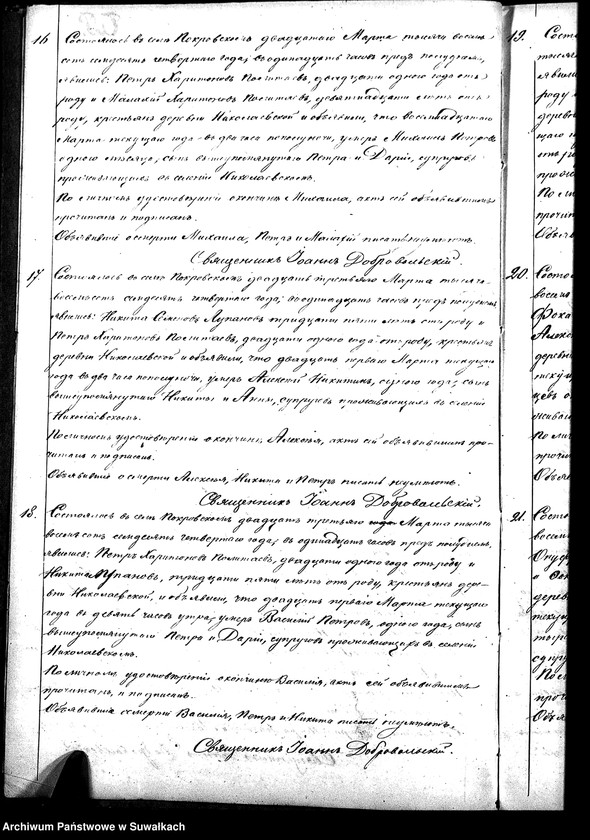 16 Состоялось въ селѣ Покровскомъ двадцатаго Марта тысяча восемь
сотъ семьдесятъ четвертаго года; въ одинадцать часовъ предъ полуднемъ,
явились: Петръ Харитоновъ двадцати одного года отъ
роду и Малахій Харитоновъ девятнадцати лѣтъ отъ
роду, крестьяне деревни Николаевской и объявили, что восемнадцатаго
Марта текущаго года въ два часа пополуночи, умеръ Михаилъ Петровъ
одного мѣсяца, сынъ вышеупомянутыхъ Петра и Даріи, супруговъ
проживающихъ въ селеніи Николаевскомъ.
По личномъ удостовѣреніи о кончинѣ Михаила, актъ сей объявившимъ
прочитанъ и подписанъ.
Объявившіе о смерти Михаила, Петръ и Малахій писать неумѣютъ.
Священникъ Іоаннъ Добровольскій.
17. Состоялось въ селѣ Покровскомъ двадцать третьяго Марта тысяча
восемьсотъ семьдесятъ четвертаго года; въ одинадцать часовъ предъ полуднемъ
явились: Никита Семеновъ Лупановъ тридцати пяти лѣтъ отъ роду и
Петръ Харитоновъ двадцати одного года отъ роду, крестьяне
деревни Николаевской и объявили, что двадцать перваго Марта текущаго
года въ два часа пополуночи, умеръ Алексѣй Никитинъ, одного года; сынъ
вышеупомянутыхъ Никиты и Анны, супруговъ проживающихъ въ селеніи
Николаевскомъ.
По личномъ удостовѣреніи о кончинѣ Алексѣя, актъ сей объявившимъ про-
читанъ и подписанъ.
Объявившіе о смерти Алексѣя, Никита и Петръ писать неумѣютъ.
Священникъ Іоаннъ Добровольскій.
18. Состоялось въ селѣ Покровскомъ двадцать третьяго Марта тысяча
восемьсотъ семьдесятъ четвертаго года; въ одинадцать часовъ предъ полуднемъ,
явились: Петръ Харитоновъ двадцати одного года отъ роду и
Никита Лупановъ, тридцати пяти лѣтъ отъ роду, крестьяне дере-
вни Николаевской, и объявили, что двадцать перваго Марта текущаго
года въ девять часовъ утра; умеръ Василій Петровъ, одного года; сынъ
вышеупомянутаго Петра и Даріи, супруговъ проживающихъ въ селеніи
Николаевскомъ.
По личномъ удостовѣреніи о кончинѣ Василія, актъ сей объявившимъ
прочитанъ и подписанъ.
Объявившіе о смерти Василія, Петръ и Никита писать неумѣютъ.
Священникъ Іоаннъ Добровольскій.
19.
20.
21.
Archiwum Państwowe w Suwałkach